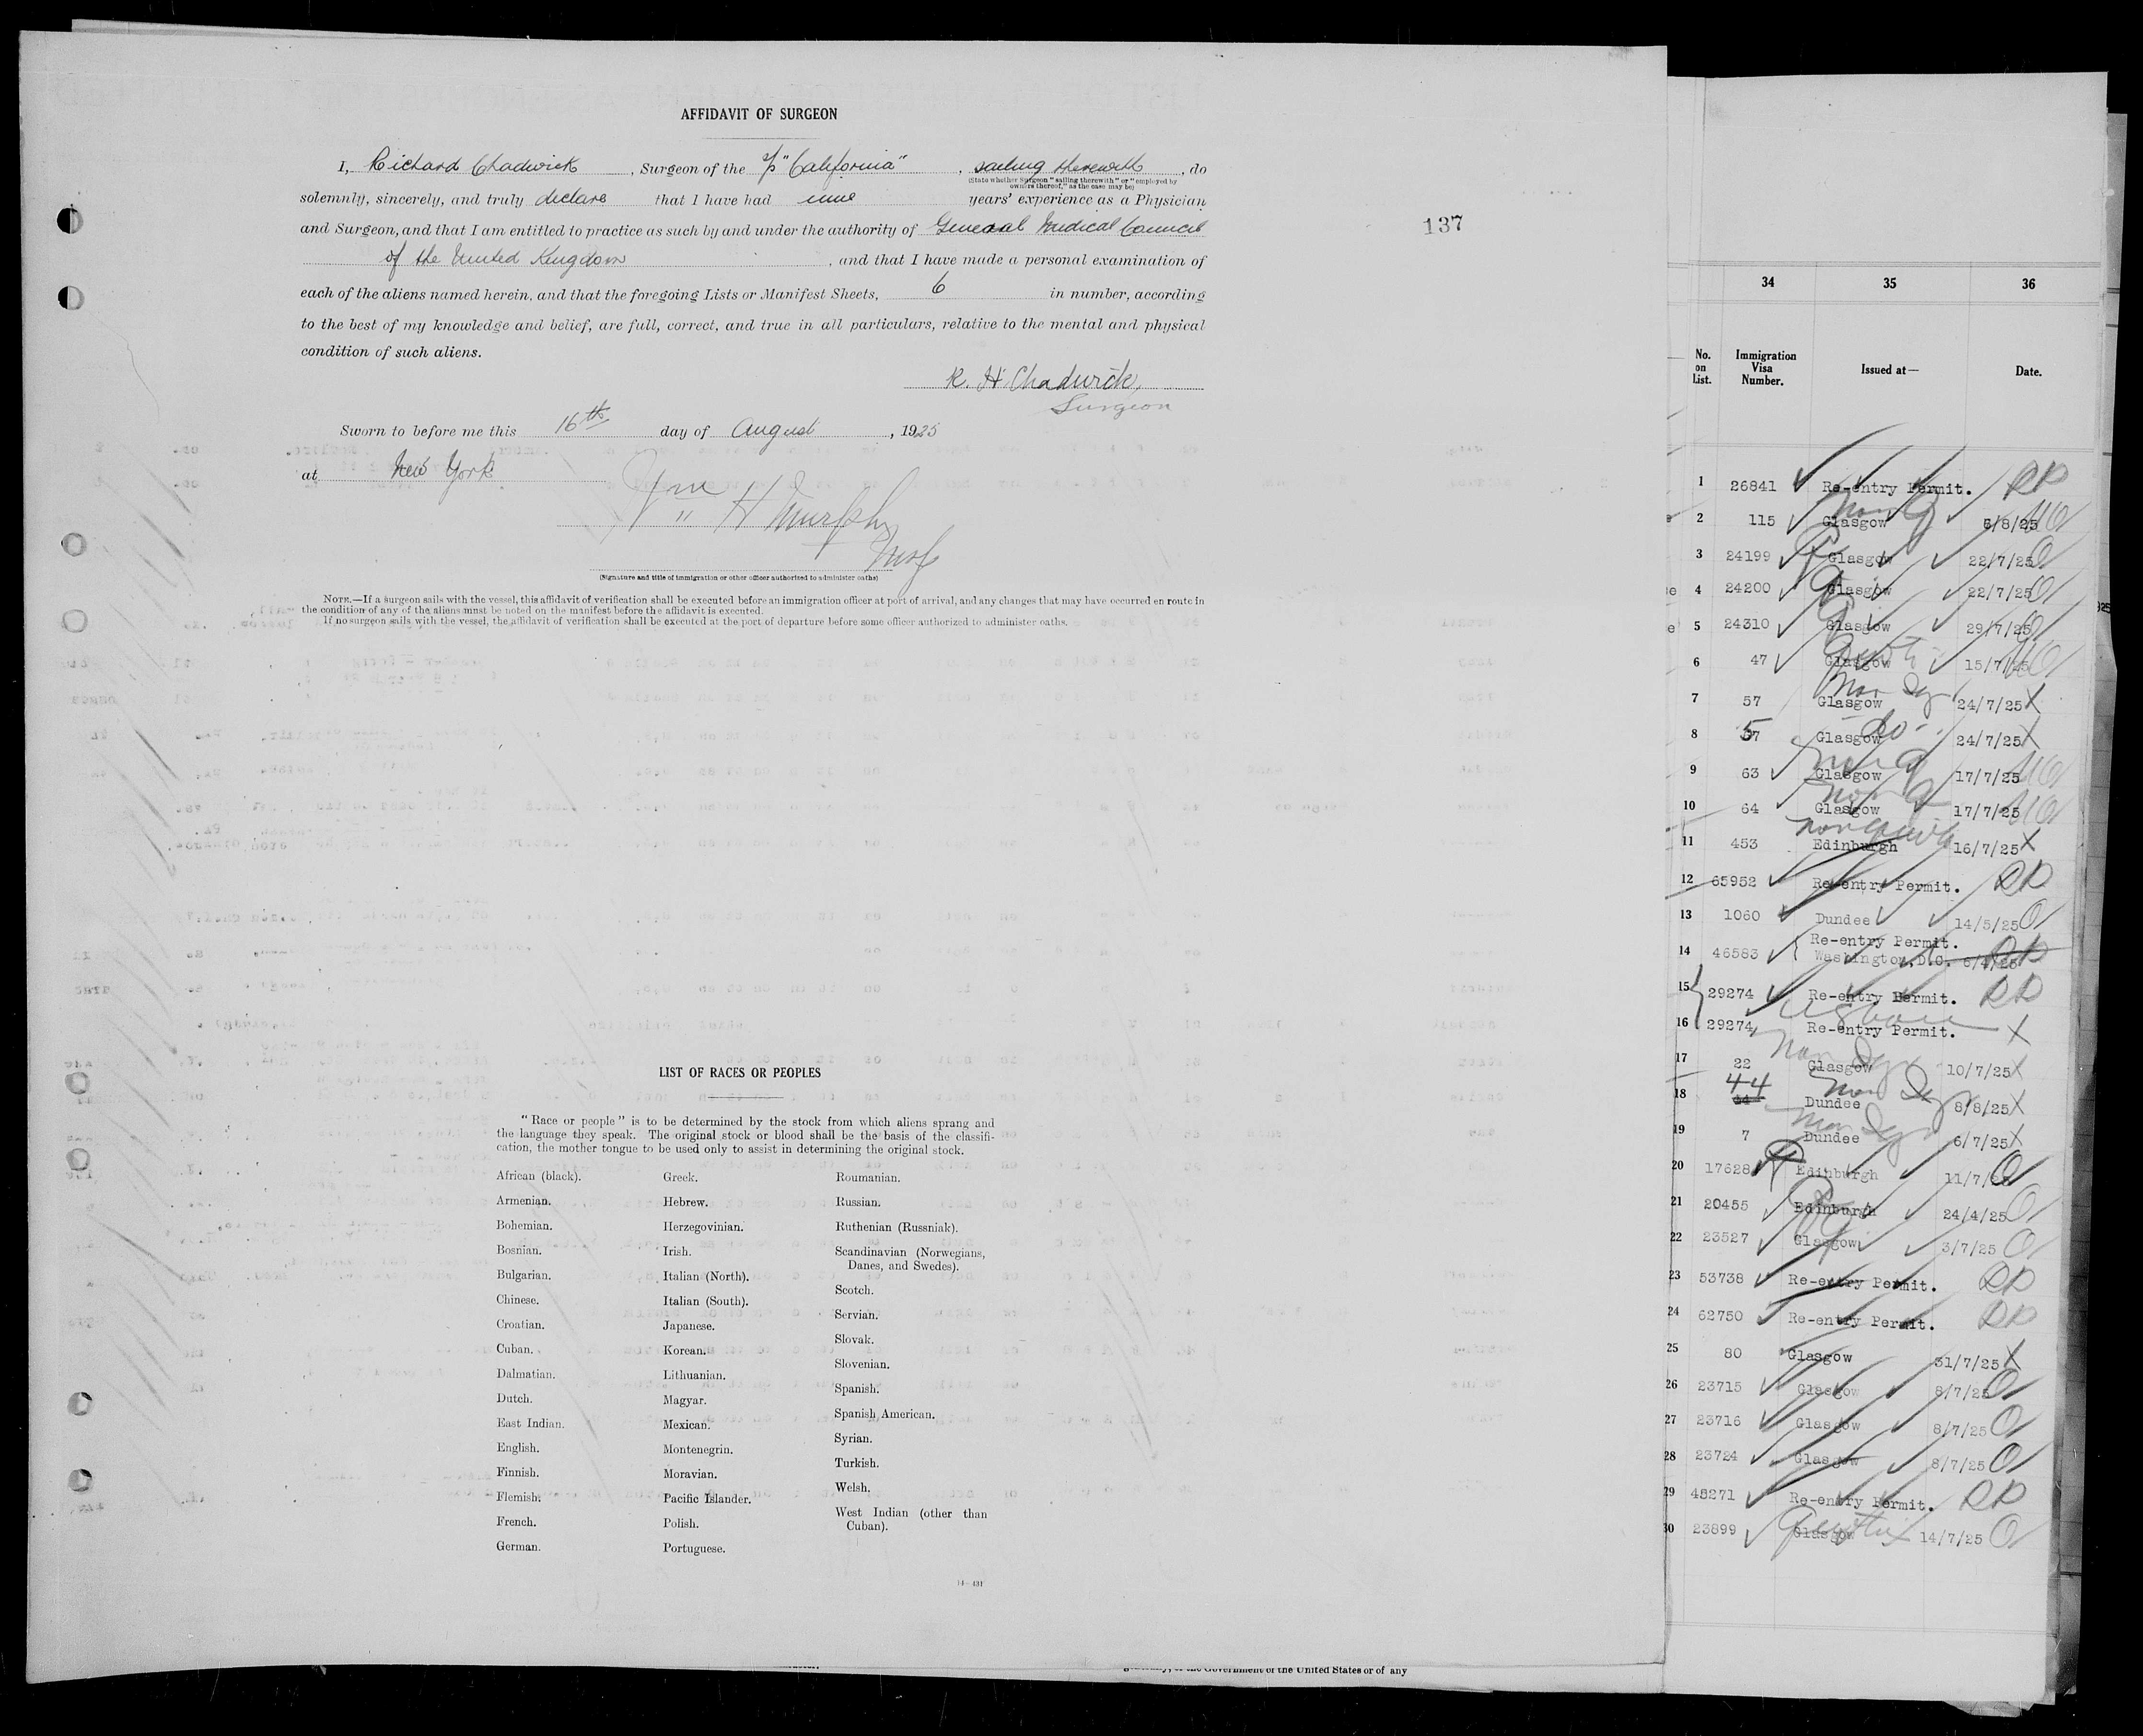 AFFIDAVIT OF SURGEON
I, Richard Chadwick, Surgeon of the S/S "California", sailing therewith, do
(State whether Surgeon "sailing therewith" or "employed by
owners thereof," as the case may be)
solemnly, sincerely, and truly declare that I have had nine years' experience as a Physician
and Surgeon, and that I am entitled to practice as such by and under the authority of General Medical Council
of the United Kingdom, and that I have made a personal examination of
each of the aliens named herein, and that the foregoing Lists or Manifest Sheets, 6 in number, according
to the best of my knowledge and belief, are full, correct, and true in all particulars, relative to the mental and physical
condition of such aliens.
R. H. Chadwick,
Surgeon
Sworn to before me this 16th day of August, 1925
at New York
Wm H Murphy
(Signature and title of immigration or other officer authorized to administer oaths)
NOTE.—If a surgeon sails with the vessel, this affidavit of verification shall be executed before an immigration officer at port of arrival, and any changes that may have occurred en route in
the condition of any of the aliens must be noted on the manifest before the affidavit is executed.
If no surgeon sails with the vessel, the affidavit of verification shall be executed at the port of departure before some officer authorized to administer oaths.
137
LIST OF RACES OR PEOPLES
"Race or people" is to be determined by the stock from which aliens sprang and
the language they speak. The original stock or blood shall be the basis of the classifi-
cation, the mother tongue to be used only to assist in determining the original stock.
African (black).
Armenian.
Bohemian.
Bosnian.
Bulgarian.
Chinese.
Croatian.
Cuban.
Dalmatian.
Dutch.
East Indian.
English.
Finnish.
Flemish.
French.
German.
Greek.
Hebrew.
Herzegovinian.
Irish.
Italian (North).
Italian (South).
Japanese.
Korean.
Lithuanian.
Magyar.
Mexican.
Montenegrin.
Moravian.
Pacific Islander.
Polish.
Portuguese.
Roumanian.
Russian.
Ruthenian (Russniak).
Scandinavian (Norwegians,
Danes, and Swedes).
Scotch.
Servian.
Slovak.
Slovenian.
Spanish.
Spanish American.
Syrian.
Turkish.
Welsh.
West Indian (other than
Cuban).
the Government of the United States or of any
34 35 36
No. on List. Immigration Visa Number. Issued at— Date.
1 26841 Re-entry Permit. RP
2 115 Glasgow 6/8/25
3 24199 Glasgow 22/7/25
4 24200 Glasgow 22/7/25
5 24310 Glasgow 29/7/25
6 47 Glasgow 15/7/25
7 57 Glasgow 24/7/25 X
8 57 Glasgow do 24/7/25 X
9 63 Glasgow 17/7/25
10 64 Glasgow 17/7/25
11 453 Edinburgh 16/7/25 X
12 65952 Re-entry Permit. RP
13 1060 Dundee 14/5/25
14 46583 Re-entry Permit.
Washington, D.C. RP
15 29274 Re-entry Permit. RP
16 29274 Re-entry Permit. X
17 22 Glasgow 10/7/25 X
18 44 Dundee 8/8/25 X
19 7 Dundee 6/7/25 X
20 17628 Edinburgh 11/7/25
21 20455 Edinburgh 24/4/25
22 23527 Glasgow 3/7/25
23 53738 Re-entry Permit. RP
24 62750 Re-entry Permit. RP
25 80 Glasgow 31/7/25 X
26 23715 Glasgow 8/7/25
27 23716 Glasgow 8/7/25
28 23724 Glasgow 8/7/25
29 48271 Re-entry Permit. RP
30 23899 Glasgow 14/7/25